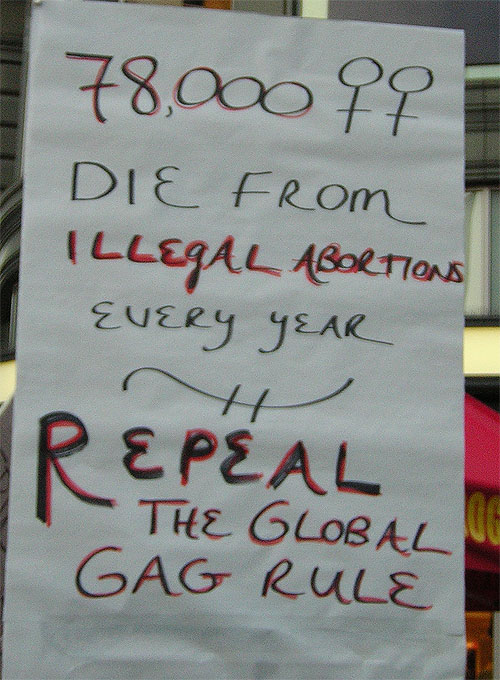 78,000 ♀♀
DIE FROM
ILLEGAL ABORTIONS
EVERY YEAR
REPEAL
THE GLOBAL
GAG RULE